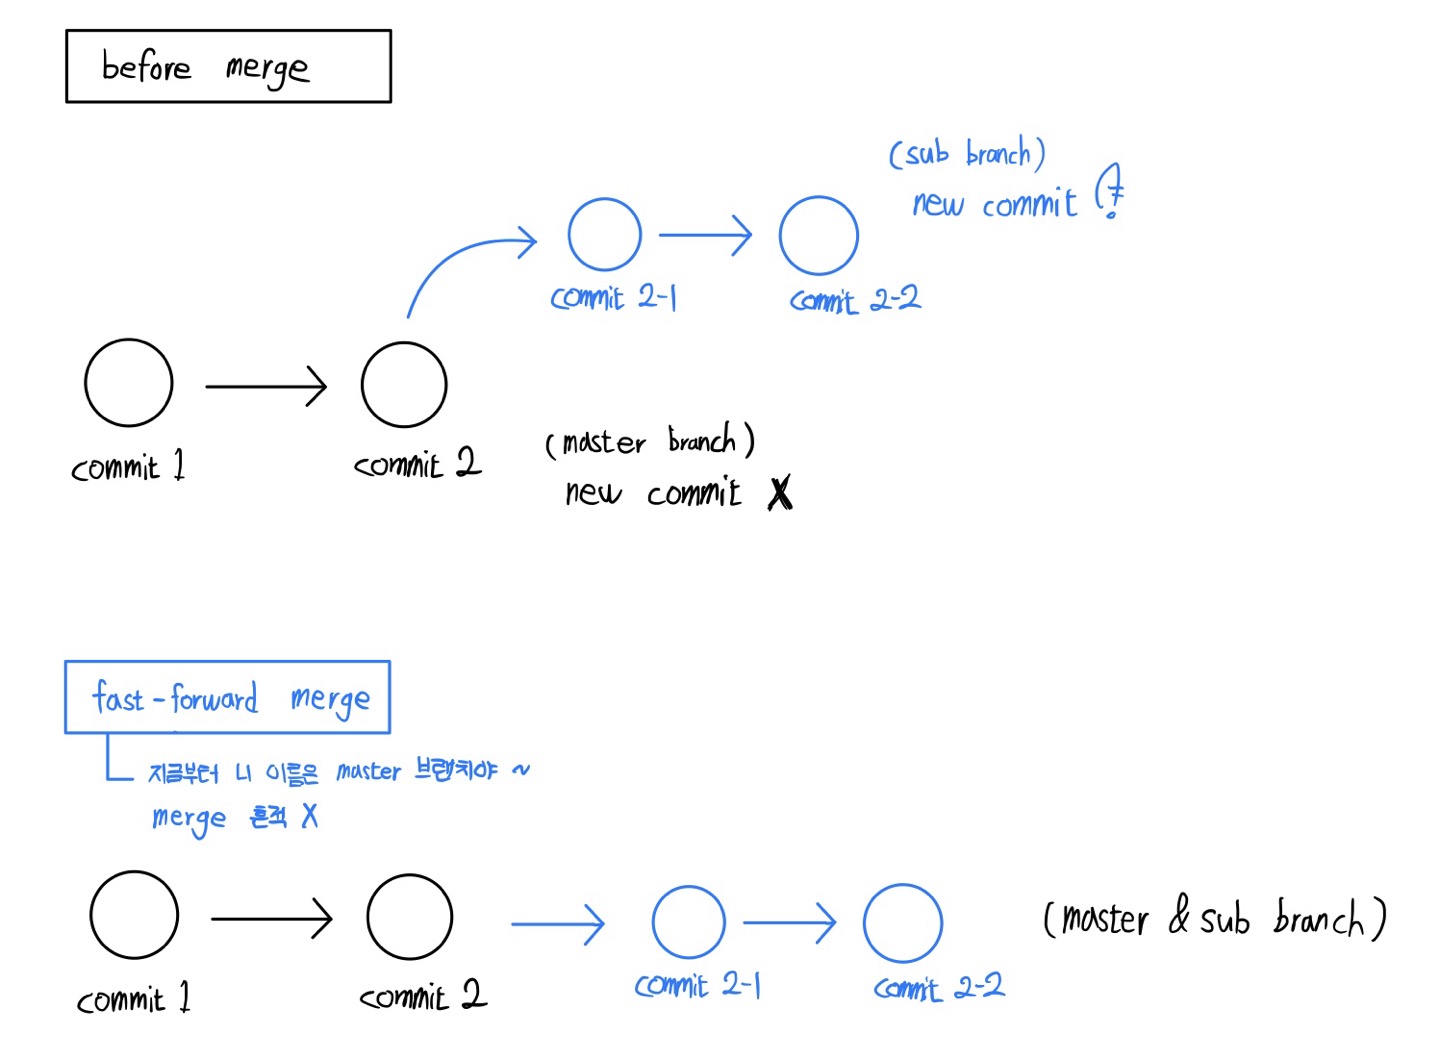 before merge
(sub branch)
new commit !
commit 2-1
commit 2-2
commit 1
commit 2
(master branch)
new commit X
fast-forward merge
지금부터 니 이름은 master 브랜치야 ~
merge 흔적 X
(master & sub branch)
commit 1
commit 2
commit 2-1
commit 2-2